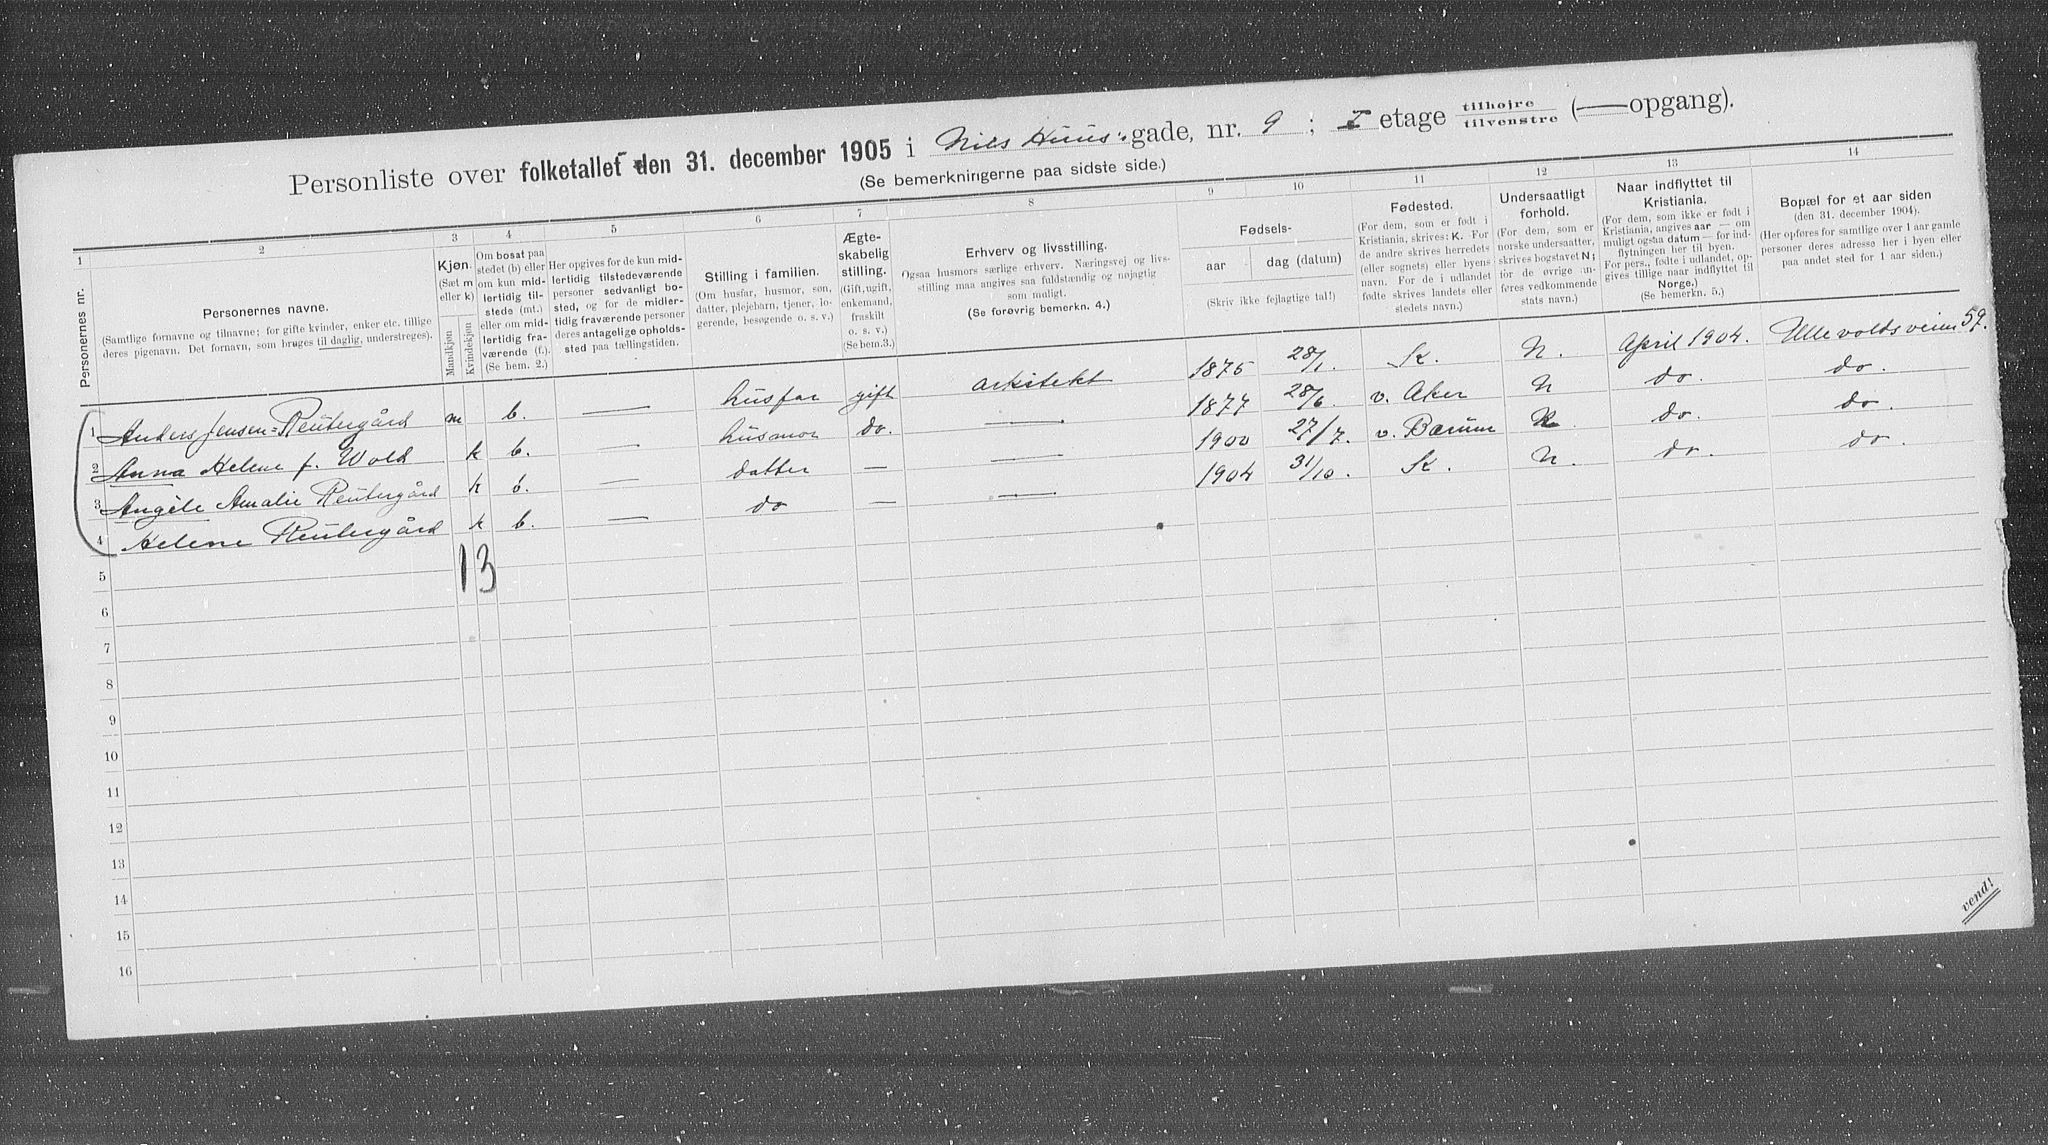 Personliste over folketallet den 31. december 1905 i Nils Huus' gade, nr. 9; I etage tilhøjre tilvenstre (— opgang).
(Se bemerkningerne paa sidste side.)
1 2 3 4 5 6 7 8 9 10 11 12 13 14
Personernes nr.
Personernes navne.
(Samtlige fornavne og tilnavne; for gifte kvinder, enker etc. tillige
deres pigenavn. Det fornavn, som bruges til daglig, understreges).
Kjøn.
(Sæt m
eller k)
Mandkjøn
Kvindekjøn
Om bosat paa
stedet (b) eller
om kun mid-
lertidig til-
stede (mt.)
eller om mid-
lertidig fra-
værende (f.).
(Se bem. 2.)
Her opgives for de kun mid-
lertidig tilstedeværende
personer sedvanligt bo-
sted, og for de midler-
tidig fraværende personer
deres antagelige opholds-
sted paa tællingstiden.
Stilling i familien.
(Om husfar, husmor, søn,
datter, plejebarn, tjener, lo-
gerende, besøgende o. s. v.)
Ægte-
skabelig
stilling.
(Gift, ugift,
enkemand,
fraskilt
o. s. v.)
(Se bem. 3.)
Erhverv og livsstilling.
Ogsaa husmors særlige erhverv. Næringsvej og livs-
stilling maa angives saa fuldstændig og nøjagtig
som muligt.
(Se forøvrig bemerkn. 4.)
Fødsels-
aar
dag (datum)
(Skriv ikke fejlagtige tal!)
Fødested.
(For dem, som er født i
Kristiania, skrives: K. For
de andre skrives herredets
(eller sognets) eller byens
navn. For de i udlandet
fødte skrives landets eller
stedets navn.)
Undersaatligt
forhold.
(For dem, som er
norske undersaatter,
skrives bogstavet N;
for de øvrige an-
føres vedkommende
stats navn.)
Naar indflyttet til
Kristiania.
(For dem, som ikke er født i
Kristiania, angives aar — om
muligt ogsaa datum — for ind-
flytningen her til byen.
For pers., fødte i udlandet, op-
gives tillige naar indflyttet til
Norge.)
(Se bemerkn. 5.)
Bopæl for et aar siden
(den 31. december 1904).
(Her opføres for samtlige over 1 aar gamle
personer deres adresse her i byen eller
paa andet sted for 1 aar siden.)
1 Anders Jensen=Reutergård m b. — husfar gift arkitekt 1875 28/1. K. N. April 1904. Ullevoldsveien 59.
2 Anna Helene f. Wold k b. — husmor do. — 1877 28/6 v. Aker N do. do.
3 Angéle Amalie Reutergård k b. — datter — — 1900 27/7. v. Bærum N. do. do.
4 Helene Reutergård k b. — do — — 1904 31/10. K. N. do. do.
13
5
6
7
8
9
10
11
12
13
14
15
16
vend!